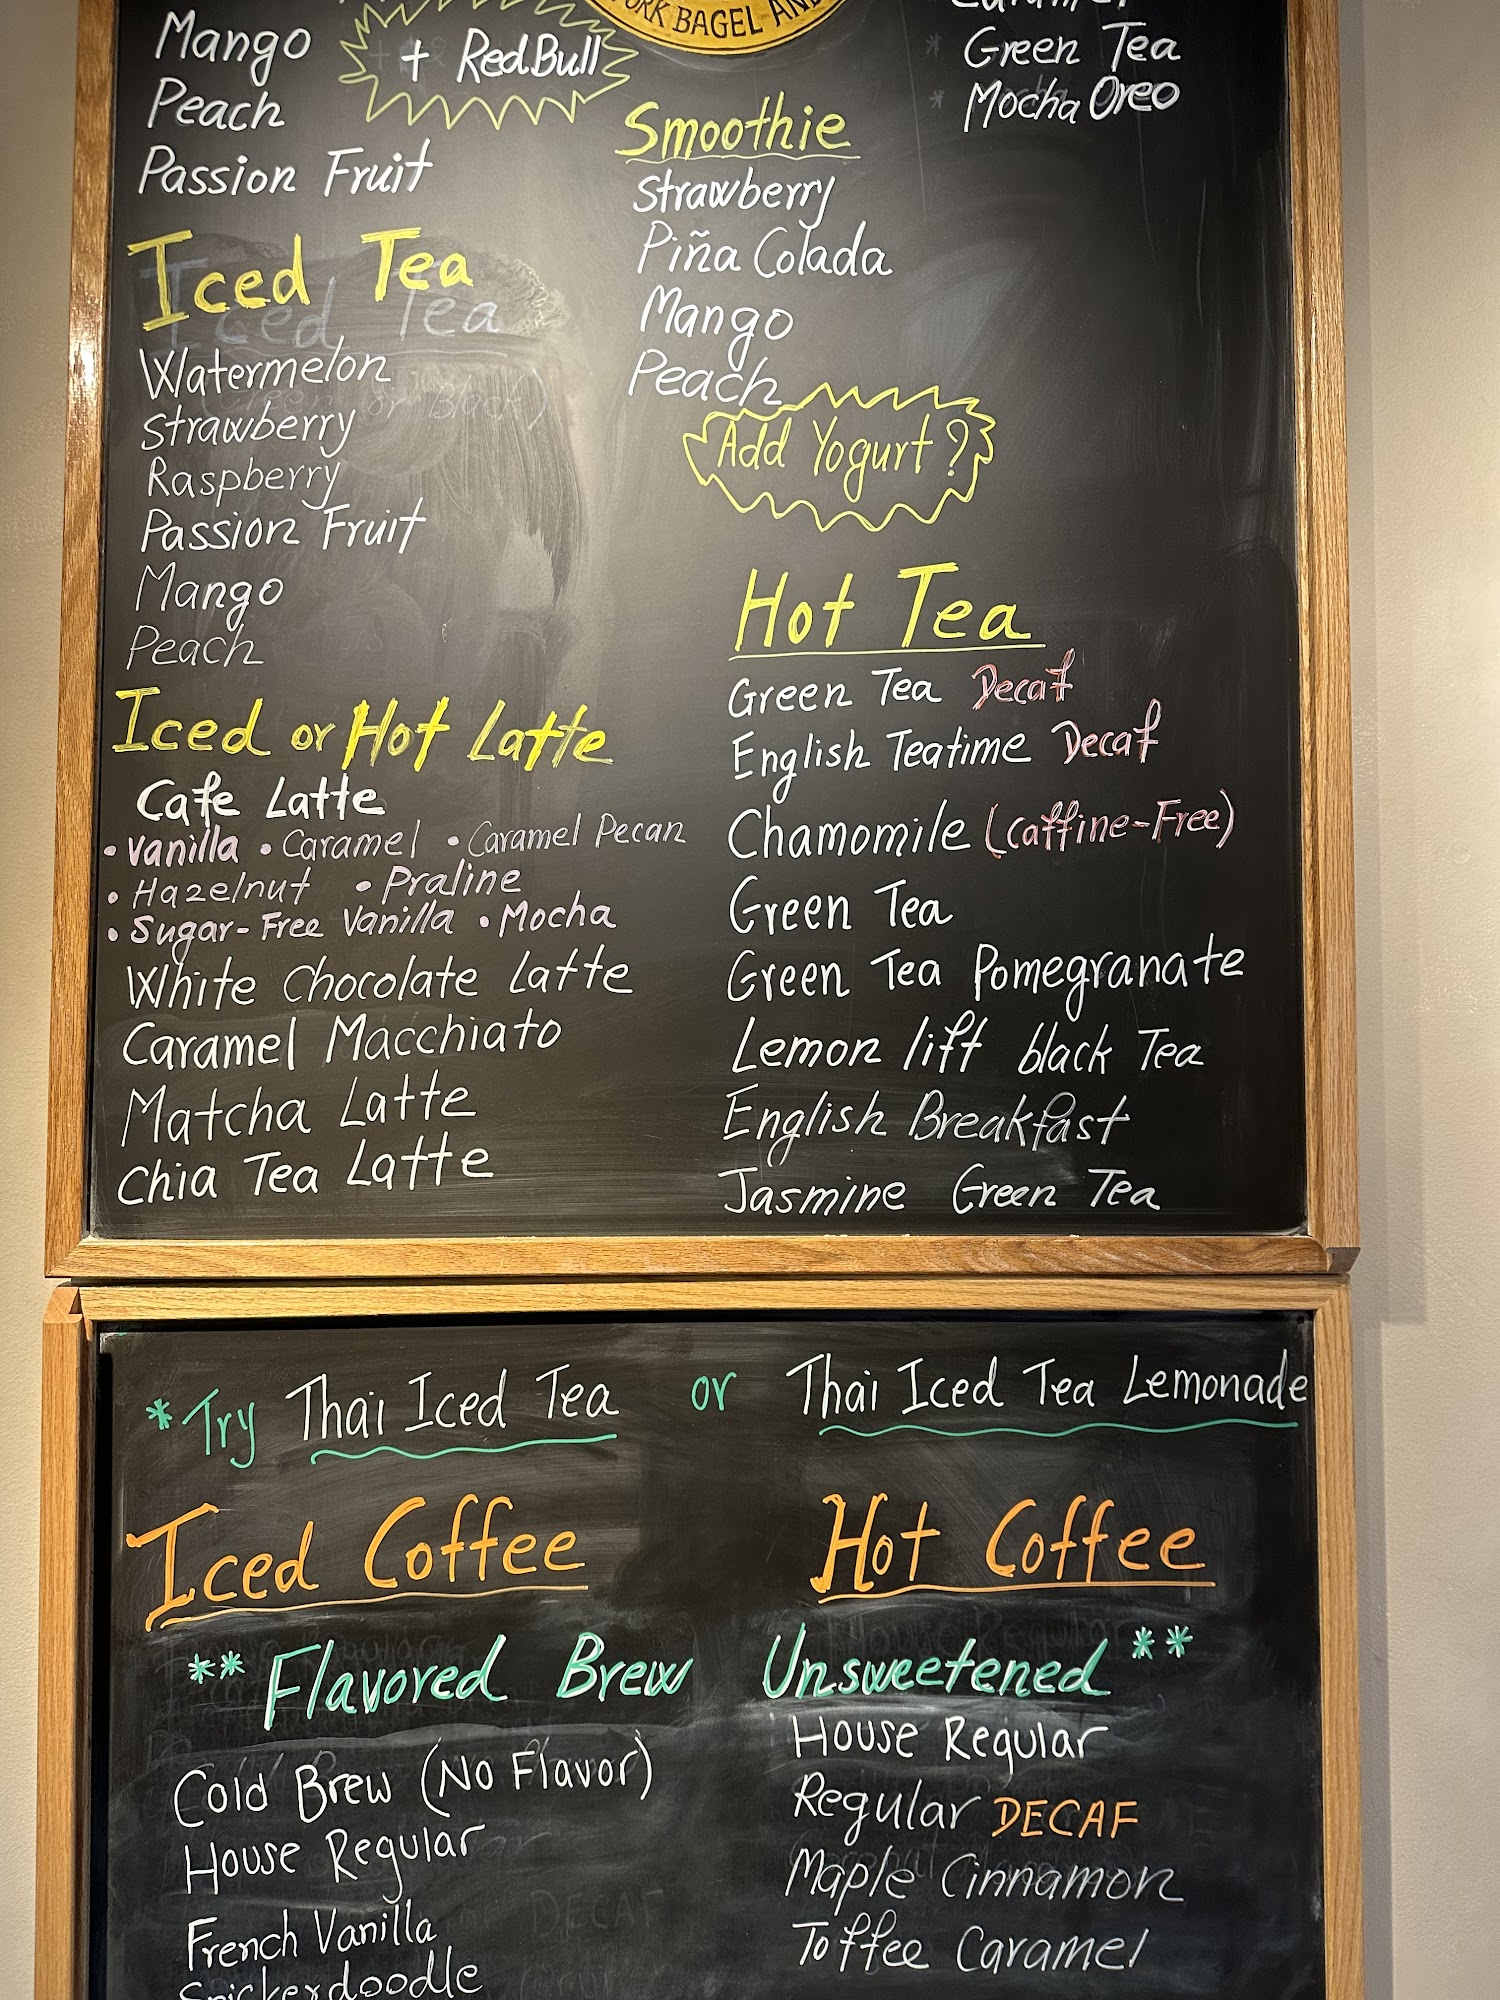 Mango
Peach
Passion Fruit
+ RedBull
BAGEL AND
Green Tea
Mocha Oreo
Smoothie
Strawberry
Piña Colada
Mango
Peach
Add Yogurt?
Iced Tea
Iced Tea
Watermelon
Strawberry
Raspberry
Passion Fruit
Mango
Peach
Iced or Hot Latte
Cafe Latte
• Vanilla • Caramel • Caramel Pecan
• Hazelnut • Praline
• Sugar-Free Vanilla • Mocha
White Chocolate Latte
Caramel Macchiato
Matcha Latte
Chia Tea Latte
Hot Tea
Green Tea Decaf
English Teatime Decaf
Chamomile (Caffine-Free)
Green Tea
Green Tea Pomegranate
Lemon lift black Tea
English Breakfast
Jasmine Green Tea
*Try Thai Iced Tea or Thai Iced Tea Lemonade
Iced Coffee
Hot Coffee
** Flavored Brew Unsweetened **
Cold Brew (No Flavor)
House Regular
French Vanilla
Snickerdoodle
House Regular
Regular DECAF
Maple Cinnamon
Toffee Caramel